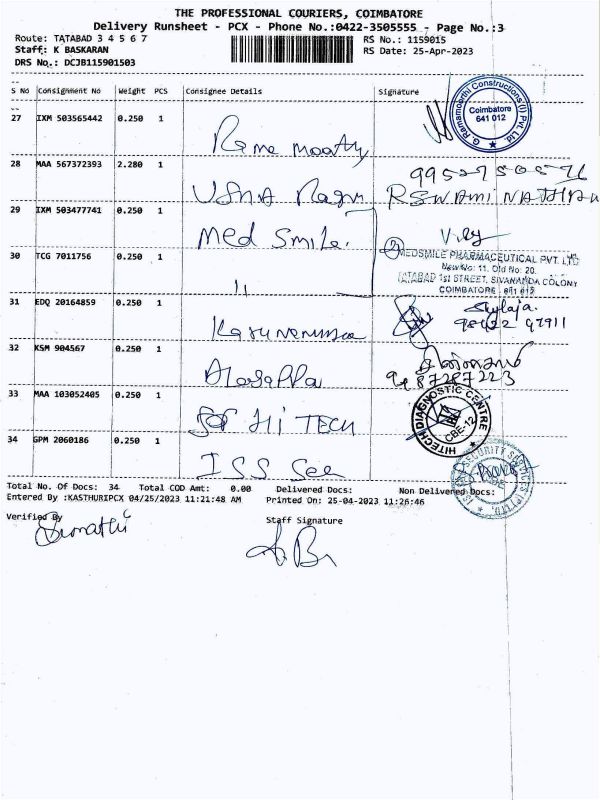 THE PROFESSIONAL COURIERS, COIMBATORE
Delivery Runsheet - PCX - Phone No.:0422-3505555 - Page No.:3
Route: TATABAD 3 4 5 6 7 RS No.: 1159015
Staff: K BASKARAN RS Date: 25-Apr-2023
DRS No.: DCJB115901503
S No Consignment No Weight PCS Consignee Details Signature
27 IXM 503565442 0.250 1 Rama moorthy
G. Ramamoorthi Constructions (I) Pvt. Ltd
Coimbatore
641 012
28 MAA 567372393 2.280 1
RSWAMINATHAN
29 IXM 503477741 0.250 1 Med Smile.
30 TCG 7011756 0.250 1 "
MEDSMILE PHARMACEUTICAL PVT. LTD
New No: 11, Old No: 20,
TATABAD 1st STREET, SIVANANDA COLONY
COIMBATORE - 641 012
31 EDQ 20164859 0.250 1
Skylaja.
98422 97911
32 KSM 904567 0.250 1 Alagappa
9487287223
33 MAA 103052405 0.250 1 HI TECH
HITECH DIAGNOSTIC CENTRE
CBE-12
34 GPM 2060186 0.250 1 ISS See
SECURITY SERVICES (P) LTD.
Total No. Of Docs: 34 Total COD Amt: 0.00 Delivered Docs: Non Delivered Docs:
Entered By :KASTHURIPCX 04/25/2023 11:21:48 AM Printed On: 25-04-2023 11:26:46
Verified By Staff Signature